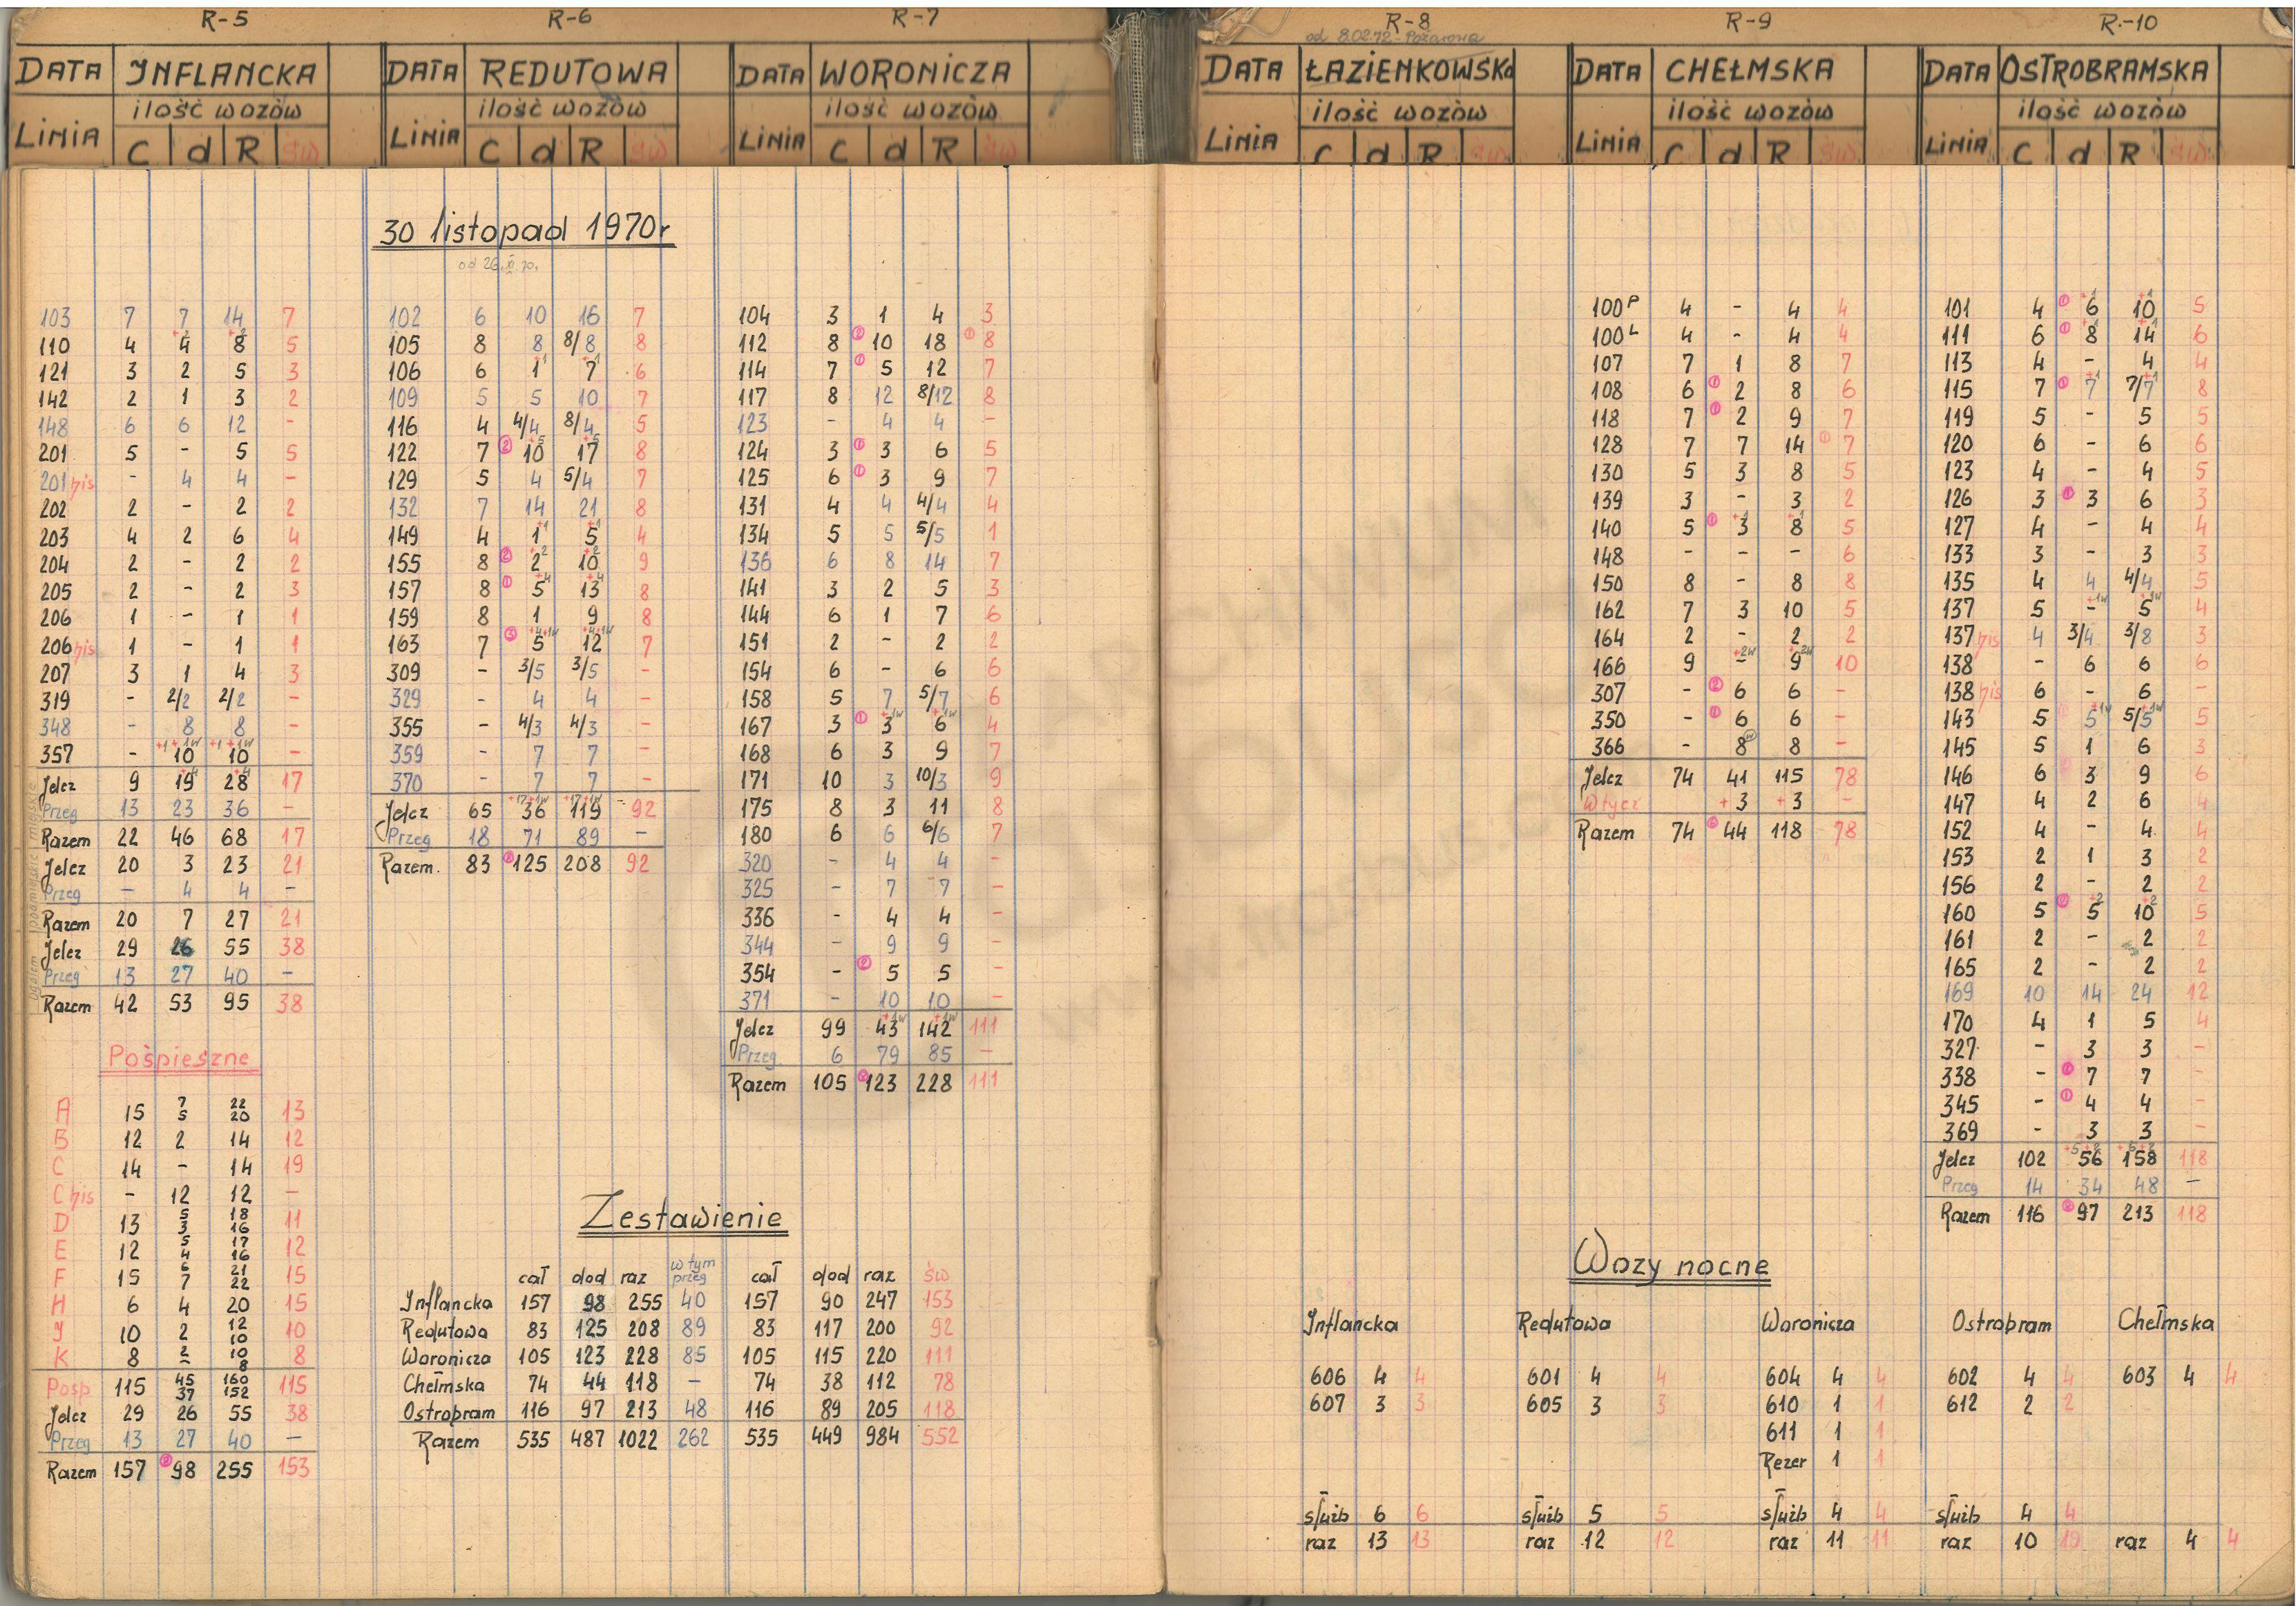 R-5
DATA INFLANCKA
ilość wozów
LINIA C d R św
103 7 7 14 7
110 4 4 +2 8 +2 5
121 3 2 5 3
142 2 1 3 2
148 6 6 12 -
201 5 - 5 5
201 bis - 4 4 -
202 2 - 2 2
203 4 2 6 4
204 2 - 2 2
205 2 - 2 3
206 1 - 1 1
206 bis 1 - 1 1
207 3 1 4 3
319 - 2/2 2/2 -
348 - 8 8 -
357 - 10 +1+1w 10 +1+1w -
Jelcz 9 19 +4 28 +4 17
Przeg 13 23 36 -
Razem 22 46 68 17
Jelcz 20 3 23 21
Przeg - 4 4 -
Razem 20 7 27 21
Jelcz 29 26 55 38
Przeg 13 27 40 -
Razem 42 53 95 38
Pośpieszne
A 15 7 5 22 20 13
B 12 2 14 12
C 14 - 14 19
C bis - 12 12 -
D 13 5 3 18 16 11
E 12 5 4 17 16 12
F 15 6 7 21 22 15
H 6 4 20 15
J 10 2 12 10 10
K 8 2 - 10 8 8
Posp 115 45 37 160 152 115
Jelcz 29 26 55 38
Przeg 13 27 40 -
Razem 157 98 255 153
R-6
DATA REDUTOWA
ilość wozów
LINIA C d R św
30 listopad 1970r
od 26.XI.70.
102 6 10 16 7
105 8 8 8/8 8
106 6 1 +1 7 +1 6
109 5 5 10 7
116 4 4/4 8/4 5
122 7 ② 10 +5 17 +5 8
129 5 4 5/4 7
132 7 14 21 8
149 4 1 +1 5 +1 4
155 8 ② 2 +2 10 +2 9
157 8 ① 5 +4 13 +4 8
159 8 1 9 8
163 7 ③ 5 +4+1w 12 +4+1w 7
309 - 3/5 3/5 -
329 - 4 4 -
355 - 4/3 4/3 -
359 - 7 7 -
370 - 7 7 -
Jelcz 65 36 +17+1w 119 +17+1w 92
Przeg 18 71 89 -
Razem. 83 125 208 92
R-7
DATA WORONICZA
ilość wozów
LINIA C d R św
104 3 1 4 3
112 8 ② 10 18 ① 8
114 7 ① 5 12 7
117 8 12 8/12 8
123 - 4 4 -
124 3 ① 3 6 5
125 6 ① 3 9 7
131 4 4 4/4 4
134 5 5 5/5 1
136 6 8 14 7
141 3 2 5 3
144 6 1 7 6
151 2 - 2 2
154 6 - 6 6
158 5 7 5/7 6
167 3 ① 3 +1w 6 +1w 4
168 6 3 9 7
171 10 3 10/3 9
175 8 3 11 8
180 6 6 6/6 7
320 - 4 4 -
325 - 7 7 -
336 - 4 4 -
344 - 9 9 -
354 - ② 5 5 -
371 - 10 10 -
Jelcz 99 43 +1w 142 +1w 111
Przeg 6 79 85 -
Razem 105 123 228 111
Zestawienie
cał dod raz w tym przeg cał dod raz św
Inflancka 157 98 255 40 157 90 247 153
Redutowa 83 125 208 89 83 117 200 92
Woronicza 105 123 228 85 105 115 220 111
Chełmska 74 44 118 - 74 38 112 78
Ostrobram 116 97 213 48 116 89 205 118
Razem 535 487 1022 262 535 449 984 552
R-8
od 8.02.72 - Pożarowa
DATA ŁAZIENKOWSKA
ilość wozów
LINIA C d R
R-9
DATA CHEŁMSKA
ilość wozów
LINIA C d R św
100P 4 - 4 4
100L 4 - 4 4
107 7 1 8 7
108 6 ① 2 8 6
118 7 ① 2 9 7
128 7 7 14 ① 7
130 5 3 8 5
139 3 - 3 2
140 5 ① 3 +1 8 +1 5
148 - - - 6
150 8 - 8 8
162 7 3 10 5
164 2 - 2 2
166 9 - +2w 9 +2w 10
307 - ② 6 6 -
350 - ① 6 6 -
366 - 8 w 8 -
Jelcz 74 41 115 78
Wtycz +3 +3 -
Razem 74 44 118 78
R-10
DATA OSTROBRAMSKA
ilość wozów
LINIA C d R św
101 4 ① 6 +1 10 +1 5
111 6 ① 8 +1 14 +1 6
113 4 - 4 4
115 7 ① 7 +1 7/7 +1 8
119 5 - 5 5
120 6 - 6 6
123 4 - 4 5
126 3 ① 3 6 3
127 4 - 4 4
133 3 - 3 3
135 4 4 4/4 5
137 5 - +1w 5 +1w 4
137 bis 4 3/4 3/8 3
138 - 6 6 6
138 bis 6 - 6 -
143 5 5 +1w 5/5 +1w 5
145 5 1 6 3
146 6 3 9 6
147 4 2 6 4
152 4 - 4 4
153 2 1 3 2
156 2 - 2 2
160 5 5 +2 10 +2 5
161 2 - 2 2
165 2 - 2 2
169 10 14 24 12
170 4 1 5 4
327 - 3 3 -
338 - ① 7 7 -
345 - ① 4 4 -
369 - 3 3 -
Jelcz 102 56 158 118
Przeg 14 34 48 -
Razem 116 97 213 118
Wozy nocne
Inflancka Redutowa Woronicza Ostrobram Chełmska
606 4 4 601 4 4 604 4 4 602 4 4 603 4 4
607 3 3 605 3 3 610 1 1 612 2 2
611 1 1
Rezer 1 1
służb 6 6 służb 5 5 służb 4 4 służb 4 4
raz 13 13 raz 12 12 raz 11 11 raz 10 10 raz 4 4